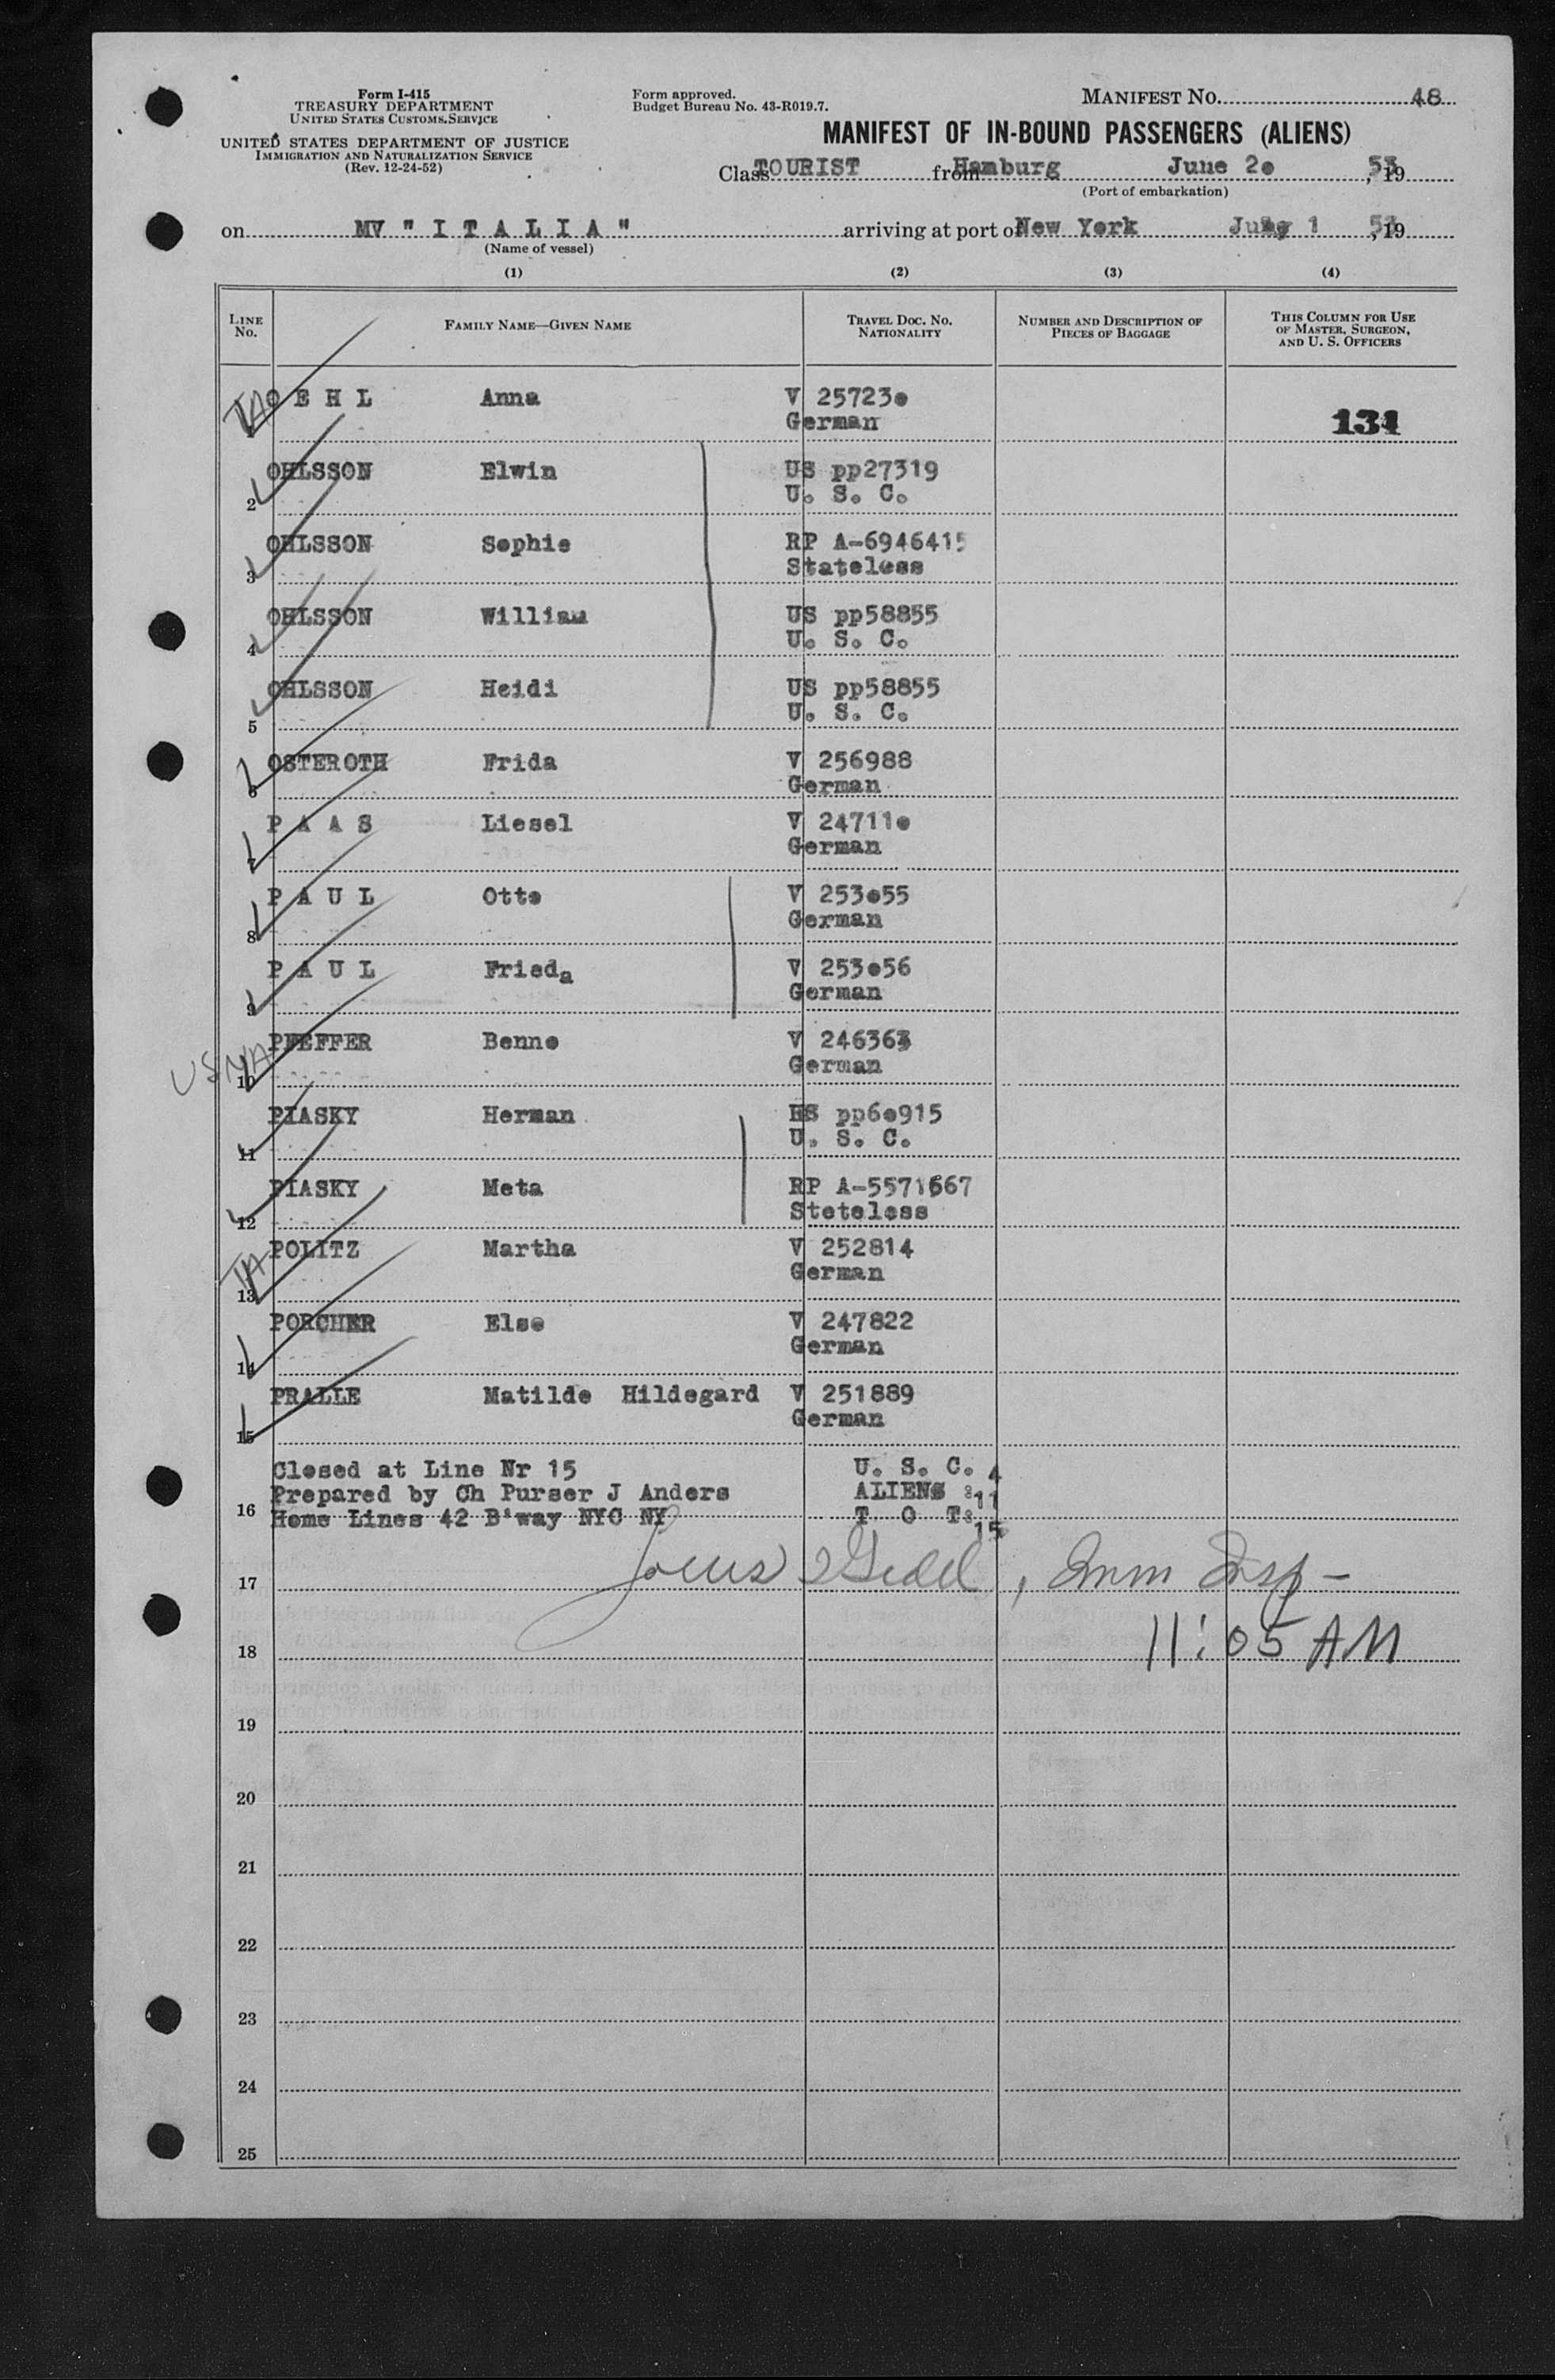 Form I-415
TREASURY DEPARTMENT
UNITED STATES CUSTOMS SERVICE
UNITED STATES DEPARTMENT OF JUSTICE
IMMIGRATION AND NATURALIZATION SERVICE
(Rev. 12-24-52)
Form approved.
Budget Bureau No. 43-R019.7.
MANIFEST NO. 48
MANIFEST OF IN-BOUND PASSENGERS (ALIENS)
Class TOURIST from Hamburg June 2e , 19 53
(Port of embarkation)
on MV " I T A L I A " arriving at port of New York July 1 , 19 53
(Name of vessel)
(1) (2) (3) (4)
LINE NO. FAMILY NAME—GIVEN NAME TRAVEL DOC. NO. NATIONALITY NUMBER AND DESCRIPTION OF PIECES OF BAGGAGE THIS COLUMN FOR USE OF MASTER, SURGEON, AND U. S. OFFICERS
O E H L Anna V 25723e
German 131
OHLSSON Elwin US pp27319
2 U. S. C.
OHLSSON Sophie RP A-6946415
3 Stateless
OHLSSON William US pp58855
4 U. S. C.
OHLSSON Heidi US pp58855
5 U. S. C.
OSTEROTH Frida V 256988
6 German
P A A S Liesel V 24711e
7 German
P A U L Otto V 253e55
8 German
P A U L Frieda V 253e56
9 German
USNA PFEFFER Benno V 246363
10 German
PIASKY Herman US pp6e915
11 U. S. C.
PIASKY Meta RP A-5571667
12 Steteless
TA POLITZ Martha V 252814
13 German
PORCHER Else V 247822
14 German
PRALLE Matilde Hildegard V 251889
15 German
Closed at Line Nr 15 U. S. C. 4
Prepared by Ch Purser J Anders ALIENS : 11
16 Home Lines 42 B'way NYC NY T O T: 15
17 , Imm Insp -
18 11:05 AM
19
20
21
22
23
24
25